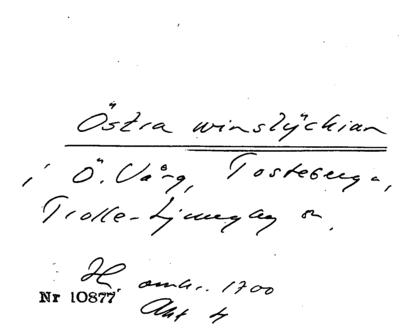 Östra winslyckian
i Ö. Vång, Tosteberga,
Trolle-Ljungby sn.
H. omkr. 1700
Nr 10877
Akt 4